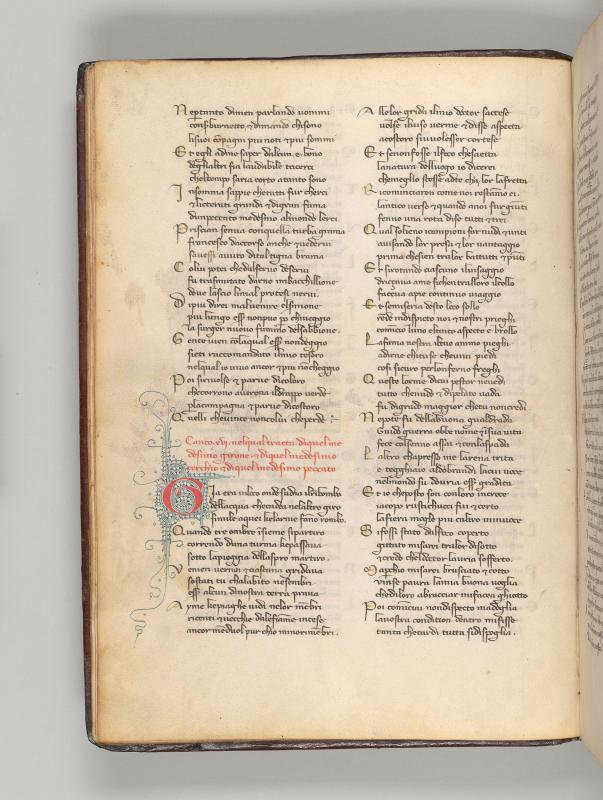 Neptanto dimen parlando uommi
conser burnetto, & dimando chisono
lisuoi cōpagni piu noti & piu sommi
Et egli adme saper dalcun, e, bono
deglialtri fia laudabile tacerci
cheltempo saria corto atanto sono
Insomma sappie chetutti fur cherci
& litterati grandi & digran fama
dunpeccato medesmo almondo lerci
Priscian senua conquella turba grama
francesco daccorso anche & uederui
sauessi auuto dital tigna brama
Colui potei chedalseruo deserui
fu trasmutato darno inbacchillione
doue lascio limal protesi nerui
Dipiu direi maluenire elsermone
piu lungo esser nonpuo po chiueggio
la surger nuouo fummo delsabbione
Gente uien colaqual esser nondeggio
sieti raccomandato ilmio tesoro
nelqual io uiuo ancor & piu nōcheggio
Poi siriuolse & parue dicoloro
checorrono auerona ildrappo uerde
placampagna & parue dicostoro
Quelli cheuince noncolui cheperde
Canto. xvj. nelqual tracta diquel me
desimo girone & diquel medesimo
cerchio & diquel medesimo peccato
Gia era inloco onde sudia ilribombo
dellacqua checadea nelaltro giro
simile aquel chelarnie fāno rombo
Quando tre ombre insieme sipartiro
correndo duna turma chepassaua
sotto lapioggia dellaspro martiro
Venien uernoi & ciascuna gridaua
sostati tu chalabito nesembri
esser alcun dinostra terra praua
Ayme chepiaghe uidi nelor mēbri
ricenti & uecchie dalefiamme incese
ancor mēduol pur chio minorimēbri.
Allelor grida ilmio doctor sattese
uolse iluiso uerme & disse aspecta
acostoro siuuolesser cortese
Et senonfosse ilfoco chesaetta
lanatura delluogo io dicerei
chemeglio stesse adte chi lor lafretta
Ricominciaron come noi restāmo ei
lantico uerso & quando anoi fur giunti
fenno una rota dise tutti & trei
Qual solieno icampioni far nudi & unti
auisando lor presa & lor uantaggio
prima chesien tralor battuti & pūti
Et sirotando ciascuno iluisaggio
drizzaua ame sichentralloro ilcollo
faceua apie continuo uiaggio
Et semiseria desto loco sollo
rende indispecto noi & nostri prieghi
comicio luno eltincto aspecto & brollo
Lafama nostra iltuo animo pieghi
adirne chituse cheuiui piedi
cosi sicuro perlonferno freghi
Questo lorme dicui pestar neuedi
tutto chenudo & dipelato uadi
fu digrado maggior chetu noncredi
Nepote fu dellabuona gualdrada
Guido guerra ebbe nome & īsua uita
fece colsenno assai & conlaspada
Laltro chapresso me larena trita
e tegghiaio aldobrandi, lacui uoce
nelmondo su douria esser gradita
Et io cheposto son conloro incroce
iacopo rusticucci fui & certo
lafiera mogle piu caltro minuoce
Si fossi stato dalfoco coperto
gittato misarei tralor disotto
& credo cheldoctor lauria sofferto.
Mapchio misarei brusciato & cotto
vinse paura lamia buona uoglia
chediloro abracciar mifacea ghiotto
Poi cominciai nondispecto madoglia
lauostra condition dentro mifisse
tanta chetardi tutta sidispoglia.